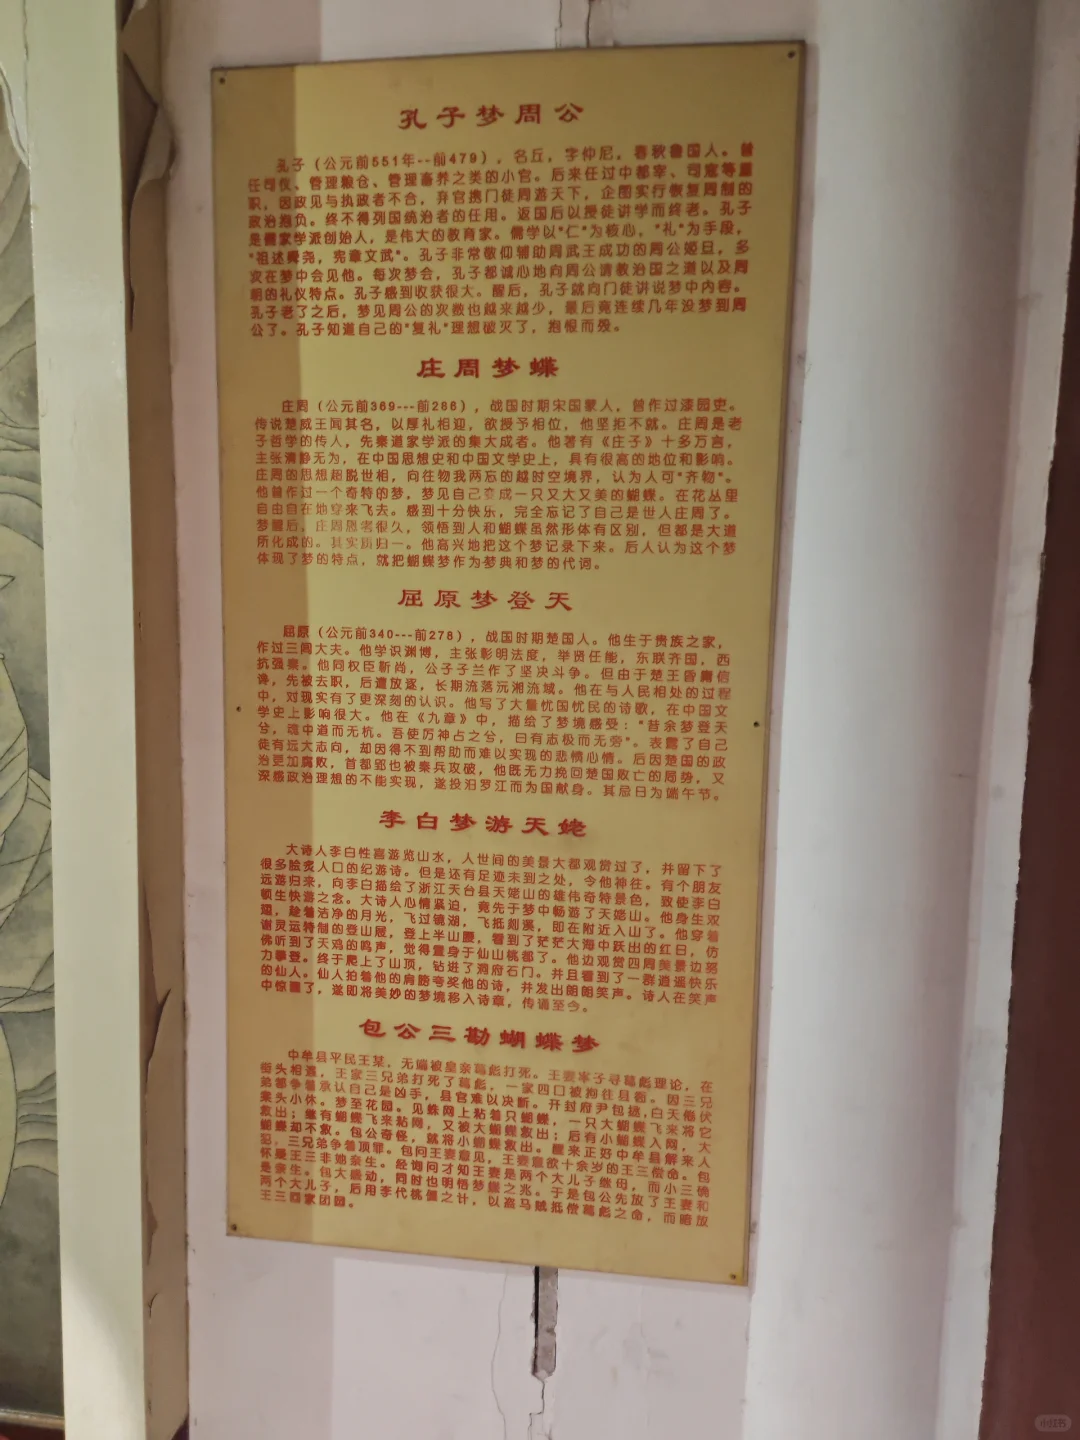 孔子梦周公
孔子（公元前551年--前479），名丘，字仲尼，春秋鲁国人。曾
任司仪、管理粮仓、管理畜养之类的小官。后来任过中都宰、司寇等重
职，因政见与执政者不合，弃官携门徒周游天下，企图实行恢复周制的
政治抱负。终不得列国统治者的任用。返国后以授徒讲学而终老。孔子
是儒家学派创始人，是伟大的教育家。儒学以"仁"为核心，"礼"为手段，
"祖述舜尧，宪章文武"。孔子非常敬仰辅助周武王成功的周公姬旦，多
次在梦中会见他。每次梦会，孔子都诚心地向周公请教治国之道以及周
朝的礼仪特点。孔子感到收获很大。醒后，孔子就向门徒讲说梦中内容。
孔子老了之后，梦见周公的次数也越来越少，最后竟连续几年没梦到周
公了。孔子知道自己的"复礼"理想破灭了，抱恨而殁。
庄周梦蝶
庄周（公元前369---前286），战国时期宋国蒙人，曾作过漆园吏。
传说楚威王闻其名，以厚礼相迎，欲授予相位，他坚拒不就。庄周是老
子哲学的传人，先秦道家学派的集大成者。他著有《庄子》十多万言，
主张清静无为，在中国思想史和中国文学史上，具有很高的地位和影响。
庄周的思想超脱世相，向往物我两忘的越时空境界，认为人可"齐物"。
他曾作过一个奇特的梦，梦见自己变成一只又大又美的蝴蝶。在花丛里
自由自在地穿来飞去。感到十分快乐，完全忘记了自己是世人庄周了。
梦醒后，庄周思考很久，领悟到人和蝴蝶虽然形体有区别，但都是大道
所化成的。其实质归一。他高兴地把这个梦记录下来。后人认为这个梦
体现了梦的特点，就把蝴蝶梦作为梦典和梦的代词。
屈原梦登天
屈原（公元前340---前278），战国时期楚国人。他生于贵族之家，
作过三闾大夫。他学识渊博，主张彰明法度，举贤任能，东联齐国，西
抗强秦。他同权臣靳尚，公子子兰作了坚决斗争。但由于楚王昏庸信
谗，先被去职，后遭放逐，长期流落沅湘流域。他在与人民相处的过程
中，对现实有了更深刻的认识。他写了大量忧国忧民的诗歌，在中国文
学史上影响很大。他在《九章》中，描绘了梦境感受："昔余梦登天
兮，魂中道而无杭。吾使厉神占之兮，曰有志极而无旁"。表露了自己
徒有远大志向，却因得不到帮助而难以实现的悲愤心情。后因楚国的政
治更加腐败，首都郢也被秦兵攻破，他既无力挽回楚国败亡的局势，又
深感政治理想的不能实现，遂投汨罗江而为国献身。其忌日为端午节。
李白梦游天姥
大诗人李白性喜游览山水，人世间的美景大都观赏过了，并留下了
很多脍炙人口的纪游诗。但是还有足迹未到之处，令他神往。有个朋友
远游归来，向李白描绘了浙江天台县天姥山的雄伟奇特景色，致使李白
顿生快游之念。大诗人心情紧迫，竟先于梦中畅游了天姥山。他身生双
翅，趁着洁净的月光，飞过镜湖，飞抵剡溪，即在附近入山了。他穿着
谢灵运特制的登山屐，登上半山腰，看到了茫茫大海中跃出的红日，仿
佛听到了天鸡的鸣声，觉得置身于仙山桃都了。他边观赏四周美景边努
力攀登。终于爬上了山顶，钻进了洞府石门。并且看到了一群逍遥快乐
的仙人。仙人拍着他的肩膀夸奖他的诗，并发出朗朗笑声。诗人在笑声
中惊醒了，遂即将美妙的梦境移入诗章，传诵至今。
包公三勘蝴蝶梦
中牟县平民王某，无端被皇亲葛彪打死。王妻率子寻葛彪理论，在
街头相遇，王家三兄弟打死了葛彪，一家四口被拘往县衙。因三兄
弟都争着承认自己是凶手，县官难以决断。开封府尹包拯，白天倦伏
案头小休。梦至花园。见蛛网上粘着只蝴蝶，一只大蝴蝶飞来将它
救出；继有蝴蝶飞来粘网，又被大蝴蝶救出；后有小蝴蝶入网，大
蝴蝶却不救。包公奇怪，就将小蝴蝶救出。醒来正好中牟县解来人
犯，三兄弟争着顶罪。包问王妻意见，王妻意欲十余岁的王三偿命。包
怀疑王三非她亲生。经询问才知王妻是两个大儿子继母，而小三确
是亲生。包大感动，同时也明悟梦蝶之兆。于是包公先放了王妻和
两个大儿子，后用李代桃僵之计，以盗马贼抵偿葛彪之命，而暗放
王三回家团圆。
小红书